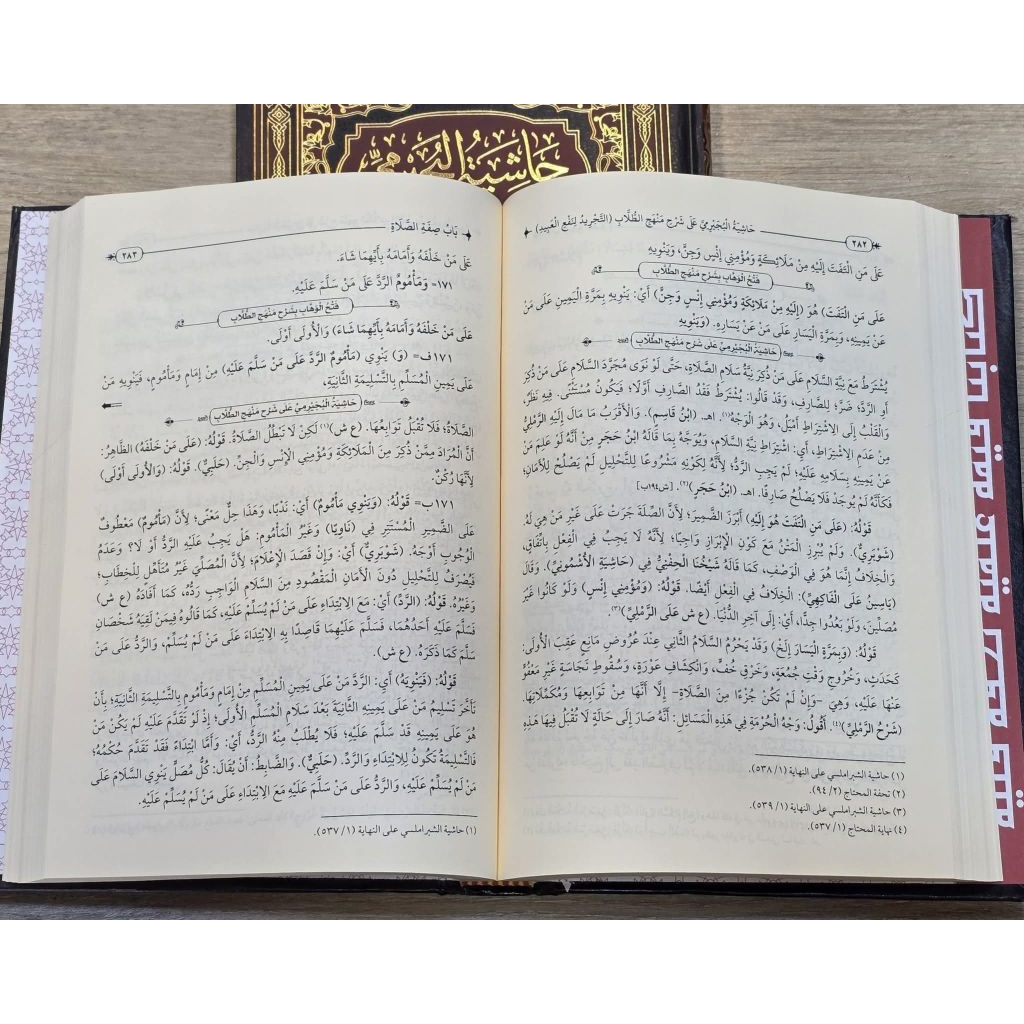 حَاشِيَةُ البُجَيْرَمِيِّ
حَاشِيَةُ الْبُجَيْرَمِيِّ عَلَى شَرْحِ مَنْهَجِ الطُّلَّابِ (التَّجْرِيدُ لِنَفْعِ الْعَبِيدِ)
٢٨٢
عَلَى مَنِ الْتَفَتَ إِلَيْهِ مِنْ مَلَائِكَةٍ وَمُؤْمِنِي إِنْسٍ وَجِنٍّ، وَيَنْوِيهِ
فَتْحُ الْوَهَّابِ بِشَرْحِ مَنْهَجِ الطُّلَّابِ
عَلَى مَنِ الْتَفَتَ) هُوَ (إِلَيْهِ مِنْ مَلَائِكَةٍ وَمُؤْمِنِي إِنْسٍ وَجِنٍّ) أَيْ: يَنْوِيهِ بِمَرَّةِ الْيَمِينِ عَلَى مَنْ
عَنْ يَمِينِهِ، وَبِمَرَّةِ الْيَسَارِ عَلَى مَنْ عَنْ يَسَارِهِ. (وَيَنْوِيهِ
حَاشِيَةُ الْبُجَيْرَمِيِّ عَلَى شَرْحِ مَنْهَجِ الطُّلَّابِ
يُشْتَرَطُ مَعَ نِيَّةِ السَّلَامِ عَلَى مَنْ ذُكِرَ نِيَّةُ سَلَامِ الصَّلَاةِ، حَتَّى لَوْ نَوَى مُجَرَّدَ السَّلَامِ عَلَى مَنْ ذُكِرَ
أَوِ الرَّدِّ؛ ضَرَّ؛ لِلصَّارِفِ، وَقَدْ قَالُوا: يُشْتَرَطُ فَقْدُ الصَّارِفِ أَوَّلًا؛ فَيَكُونُ مُسْتَثْنًى. فِيهِ نَظَرٌ،
وَالْقَلْبُ إِلَى الِاشْتِرَاطِ أَمْيَلُ، وَهُوَ الْوَجْهُ(١). اهـ. (ابْنُ قَاسِمٍ). وَالْأَقْرَبُ مَا مَالَ إِلَيْهِ الرَّمْلِيُّ
مِنْ عَدَمِ الِاشْتِرَاطِ، أَيِ: اشْتِرَاطِ نِيَّةِ السَّلَامِ، وَيُوَجَّهُ بِمَا قَالَهُ ابْنُ حَجَرٍ مِنْ أَنَّهُ لَوْ عَلِمَ مَنْ
عَنْ يَمِينِهِ بِسَلَامِهِ عَلَيْهِ؛ لَمْ يَجِبِ الرَّدُّ؛ لِأَنَّهُ لِكَوْنِهِ مَشْرُوعًا لِلتَّحْلِيلِ لَمْ يَصْلُحْ لِلْأَمَانِ؛
فَكَأَنَّهُ لَمْ يُوجَدْ فَلَا يَصْلُحُ صَارِفًا. اهـ. (ابْنُ حَجَرٍ)(٢). [ش١٩٤ب]
قَوْلُهُ: (عَلَى مَنِ الْتَفَتَ هُوَ إِلَيْهِ) أَبْرَزَ الضَّمِيرَ؛ لِأَنَّ الصِّلَةَ جَرَتْ عَلَى غَيْرِ مَنْ هِيَ لَهُ.
(شَوْبَرِيٌّ). وَلَمْ يُبْرِزِ الْمَتْنُ مَعَ كَوْنِ الْإِبْرَازِ وَاجِبًا؛ لِأَنَّهُ لَا يَجِبُ فِي الْفِعْلِ بِاتِّفَاقٍ،
وَالْخِلَافُ إِنَّمَا هُوَ فِي الْوَصْفِ، كَمَا قَالَهُ شَيْخُنَا الْحِفْنِيُّ فِي (حَاشِيَةِ الْأُشْمُونِيِّ). وَقَالَ
(يَاسِينُ عَلَى الْفَاكِهِيِّ): الْخِلَافُ فِي الْفِعْلِ أَيْضًا. قَوْلُهُ: (وَمُؤْمِنِي إِنْسٍ) وَلَوْ كَانُوا غَيْرَ
مُصَلِّينَ، وَلَوْ بَعُدُوا جِدًّا، أَيْ: إِلَى آخِرِ الدُّنْيَا. (ع ش عَلَى الرَّمْلِيِّ)(٣)
قَوْلُهُ: (وَبِمَرَّةِ الْيَسَارِ إِلَخْ) وَقَدْ يَحْرُمُ السَّلَامُ الثَّانِي عِنْدَ عُرُوضِ مَانِعٍ عَقِبَ الْأُولَى؛
كَحَدَثٍ، وَخُرُوجِ وَقْتِ جُمُعَةٍ، وَخَرْقِ خُفٍّ، وَانْكِشَافِ عَوْرَةٍ، وَسُقُوطِ نَجَاسَةٍ غَيْرِ مَعْفُوٍّ
عَنْهَا عَلَيْهِ، وَهِيَ -وَإِنْ لَمْ تَكُنْ جُزْءًا مِنَ الصَّلَاةِ- إِلَّا أَنَّهَا مِنْ تَوَابِعِهَا وَمُكَمِّلَاتِهَا.
(شَرْحُ الرَّمْلِيِّ)(٤). أَقُولُ: وَجْهُ الْحُرْمَةِ فِي هَذِهِ الْمَسَائِلِ: أَنَّهُ صَارَ إِلَى حَالَةٍ لَا تُقْبَلُ فِيهَا هَذِهِ
(١) حاشية الشبراملسي على النهاية (١/ ٥٣٨).
(٢) تحفة المحتاج (٢/ ٩٤).
(٣) حاشية الشبراملسي على النهاية (١/ ٥٣٩).
(٤) نهاية المحتاج (١/ ٥٣٧).
بَابُ صِفَةِ الصَّلَاةِ
٢٨٣
عَلَى مَنْ خَلْفَهُ وَأَمَامَهُ بِأَيِّهِمَا شَاءَ.
١٧١- وَمَأْمُومٌ الرَّدَّ عَلَى مَنْ سَلَّمَ عَلَيْهِ.
فَتْحُ الْوَهَّابِ بِشَرْحِ مَنْهَجِ الطُّلَّابِ
عَلَى مَنْ خَلْفَهُ وَأَمَامَهُ بِأَيِّهِمَا شَاءَ) وَالْأُولَى أَوْلَى.
١٧١ف= (وَ) يَنْوِي (مَأْمُومٌ الرَّدَّ عَلَى مَنْ سَلَّمَ عَلَيْهِ) مِنْ إِمَامٍ وَمَأْمُومٍ، فَيَنْوِيهِ مَنْ
عَلَى يَمِينِ الْمُسَلِّمِ بِالتَّسْلِيمَةِ الثَّانِيَةِ،
حَاشِيَةُ الْبُجَيْرَمِيِّ عَلَى شَرْحِ مَنْهَجِ الطُّلَّابِ
الصَّلَاةُ؛ فَلَا تُقْبَلُ تَوَابِعُهَا. (ع ش)(١) لَكِنْ لَا تَبْطُلُ الصَّلَاةُ. قَوْلُهُ: (عَلَى مَنْ خَلْفَهُ) الظَّاهِرُ:
أَنَّ الْمُرَادَ مِمَّنْ ذُكِرَ مِنَ الْمَلَائِكَةِ وَمُؤْمِنِي الْإِنْسِ وَالْجِنِّ. (حَلَبِيٌّ). قَوْلُهُ: (وَالْأُولَى أَوْلَى)
لِأَنَّهَا رُكْنٌ.
١٧١ب= قَوْلُهُ: (وَيَنْوِي مَأْمُومٌ) أَيْ: نَدْبًا، وَهَذَا حِلُّ مَعْنًى؛ لِأَنَّ (مَأْمُومٌ) مَعْطُوفٌ
عَلَى الضَّمِيرِ الْمُسْتَتِرِ فِي (نَاوِيًا) وَغَيْرُ الْمَأْمُومِ: هَلْ يَجِبُ عَلَيْهِ الرَّدُّ أَوْ لَا؟ وَعَدَمُ
الْوُجُوبِ أَوْجَهُ. (شَوْبَرِيٌّ) أَيْ: وَإِنْ قَصَدَ الْإِعْلَامَ؛ لِأَنَّ الْمُصَلِّيَ غَيْرُ مُتَأَهِّلٍ لِلْخِطَابِ؛
فَيُصْرَفُ لِلتَّحْلِيلِ دُونَ الْأَمَانِ الْمَقْصُودِ مِنَ السَّلَامِ الْوَاجِبِ رَدُّهُ، كَمَا أَفَادَهُ (ع ش)
وَغَيْرُهُ. قَوْلُهُ: (الرَّدَّ) أَيْ: مَعَ الِابْتِدَاءِ عَلَى مَنْ لَمْ يُسَلِّمْ عَلَيْهِ، كَمَا قَالُوهُ فِيمَنْ لَقِيَهُ شَخْصَانِ
فَسَلَّمَ عَلَيْهِ أَحَدُهُمَا، فَسَلَّمَ عَلَيْهِمَا قَاصِدًا بِهِ الِابْتِدَاءَ عَلَى مَنْ لَمْ يُسَلِّمْ، وَالرَّدَّ عَلَى مَنْ
سَلَّمَ كَمَا ذَكَرَهُ. (ع ش).
قَوْلُهُ: (فَيَنْوِيهِ) أَيِ: الرَّدَّ مَنْ عَلَى يَمِينِ الْمُسَلِّمِ مِنْ إِمَامٍ وَمَأْمُومٍ بِالتَّسْلِيمَةِ الثَّانِيَةِ؛ بِأَنْ
تَأَخَّرَ تَسْلِيمُ مَنْ عَلَى يَمِينِهِ الثَّانِيَةَ بَعْدَ سَلَامِ الْمُسَلِّمِ الْأُولَى؛ إِذْ لَوْ تَقَدَّمَ عَلَيْهِ لَمْ يَكُنْ مَنْ
هُوَ عَلَى يَمِينِهِ قَدْ سَلَّمَ عَلَيْهِ؛ فَلَا يُطْلَبُ مِنْهُ الرَّدُّ، أَيْ: وَأَمَّا ابْتِدَاءً فَقَدْ تَقَدَّمَ حُكْمُهُ؛
فَالتَّسْلِيمَةُ تَكُونُ لِلِابْتِدَاءِ وَالرَّدِّ. (حَلَبِيٌّ). وَالضَّابِطُ: أَنْ يُقَالَ: كُلُّ مُصَلٍّ يَنْوِي السَّلَامَ عَلَى
مَنْ لَمْ يُسَلِّمْ عَلَيْهِ، وَالرَّدَّ عَلَى مَنْ سَلَّمَ عَلَيْهِ مَعَ الِابْتِدَاءِ عَلَى مَنْ لَمْ يُسَلِّمْ عَلَيْهِ.
(١) حاشية الشبراملسي على النهاية (١/ ٥٣٧).